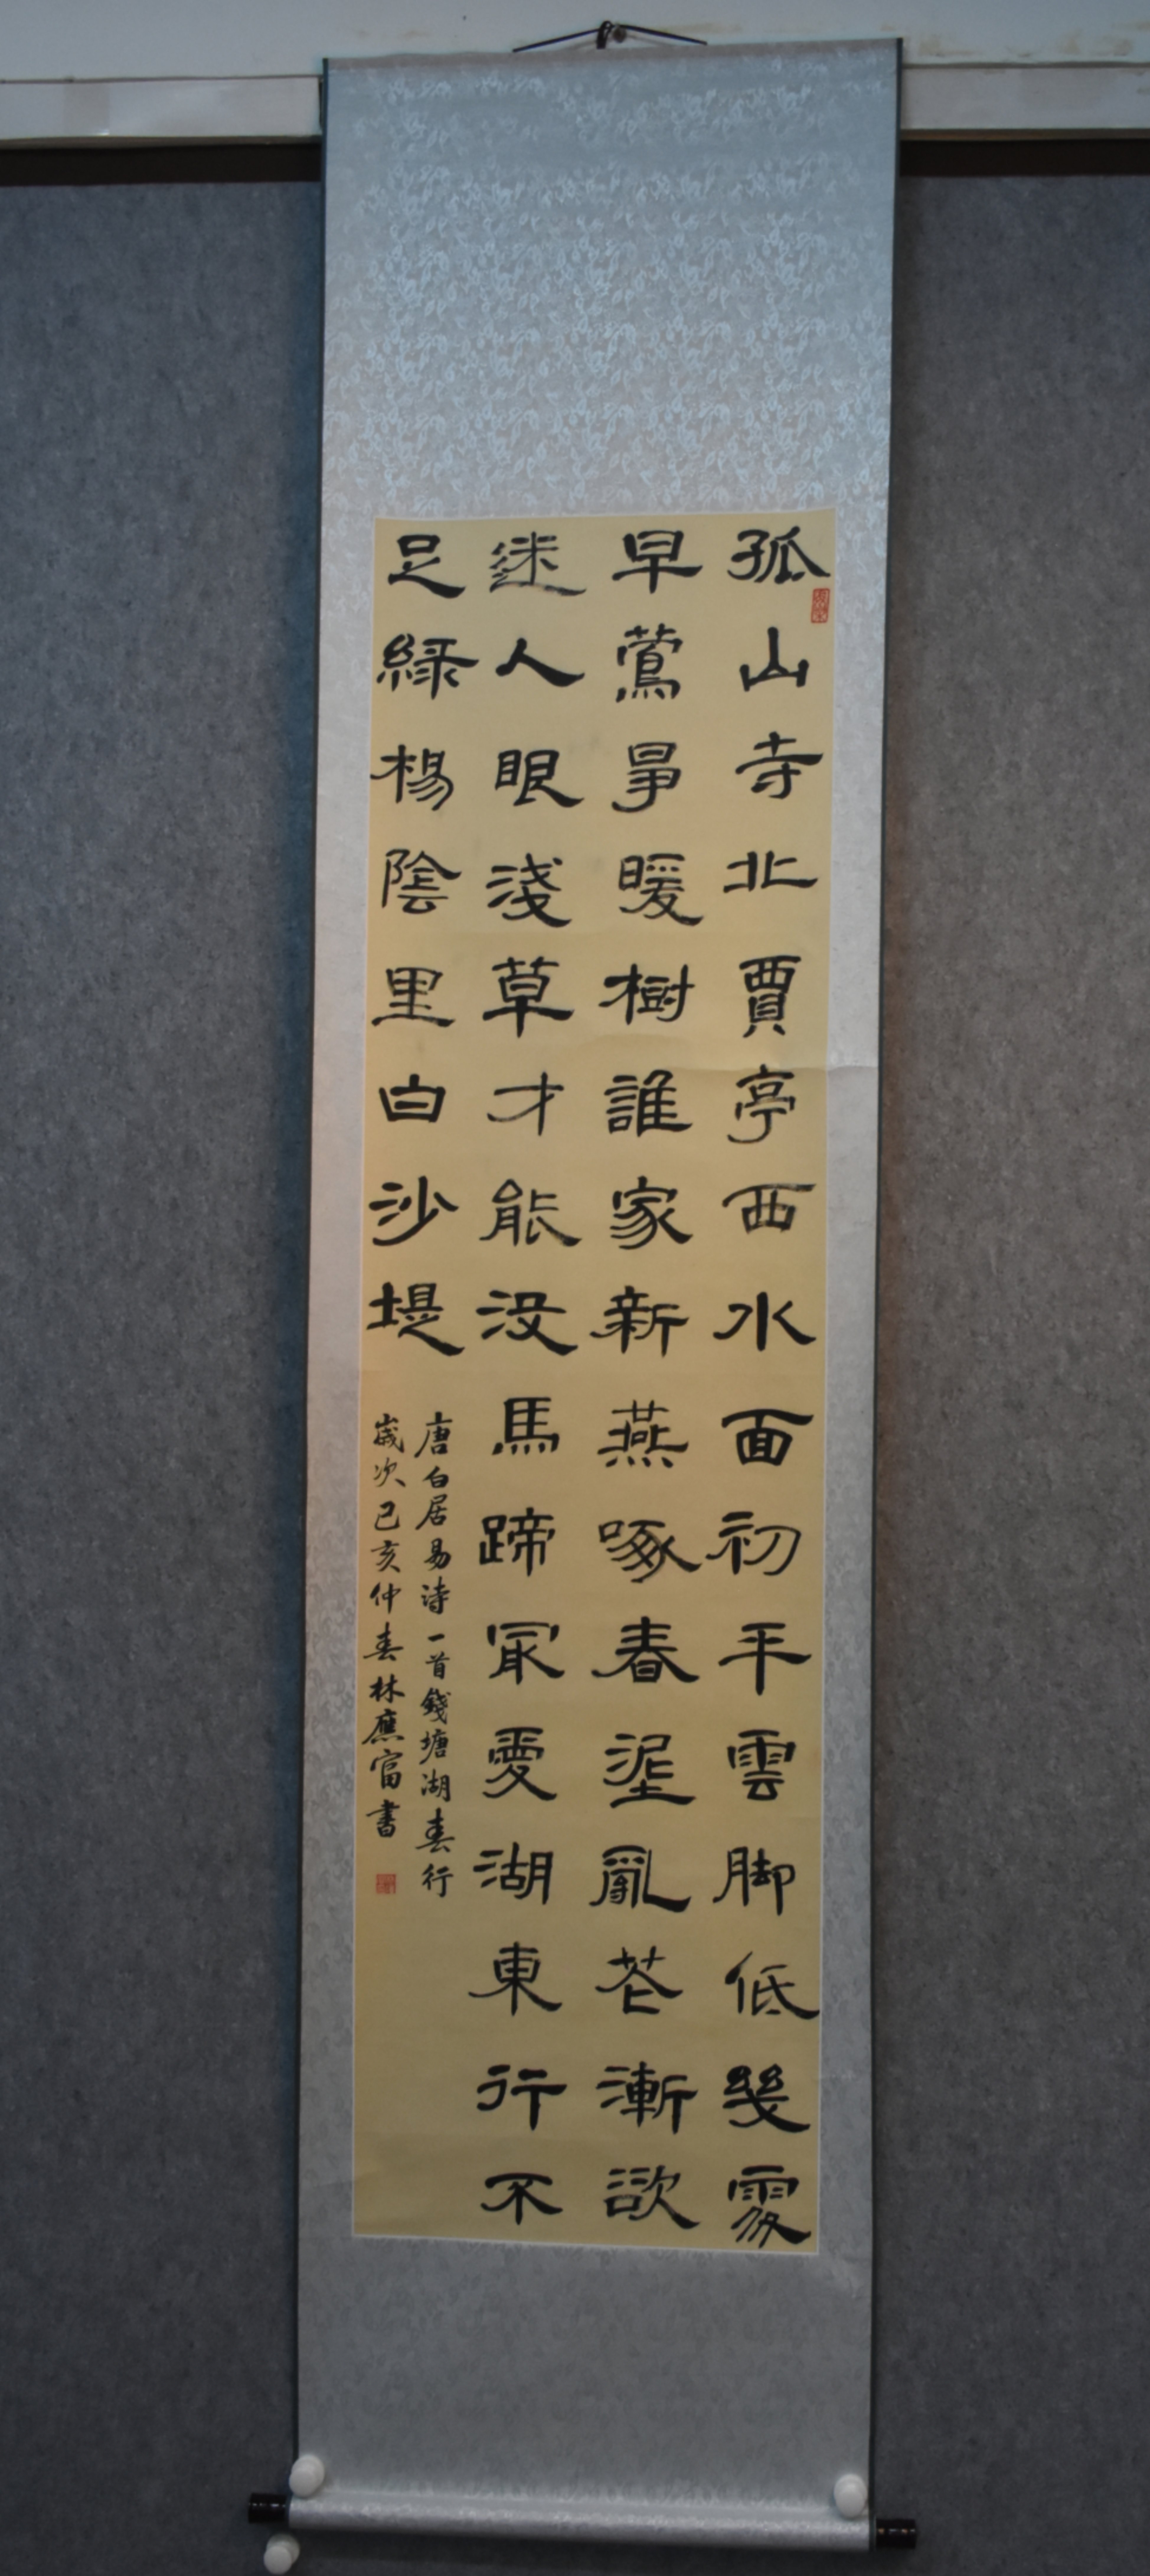 孤山寺北賈亭西水面初平雲脚低幾處
早鶯爭暖樹誰家新燕啄春泥亂花漸欲
迷人眼淺草才能没馬蹄最愛湖東行不
足綠楊陰里白沙堤
唐白居易詩一首錢塘湖春行
歲次己亥仲春林應富書